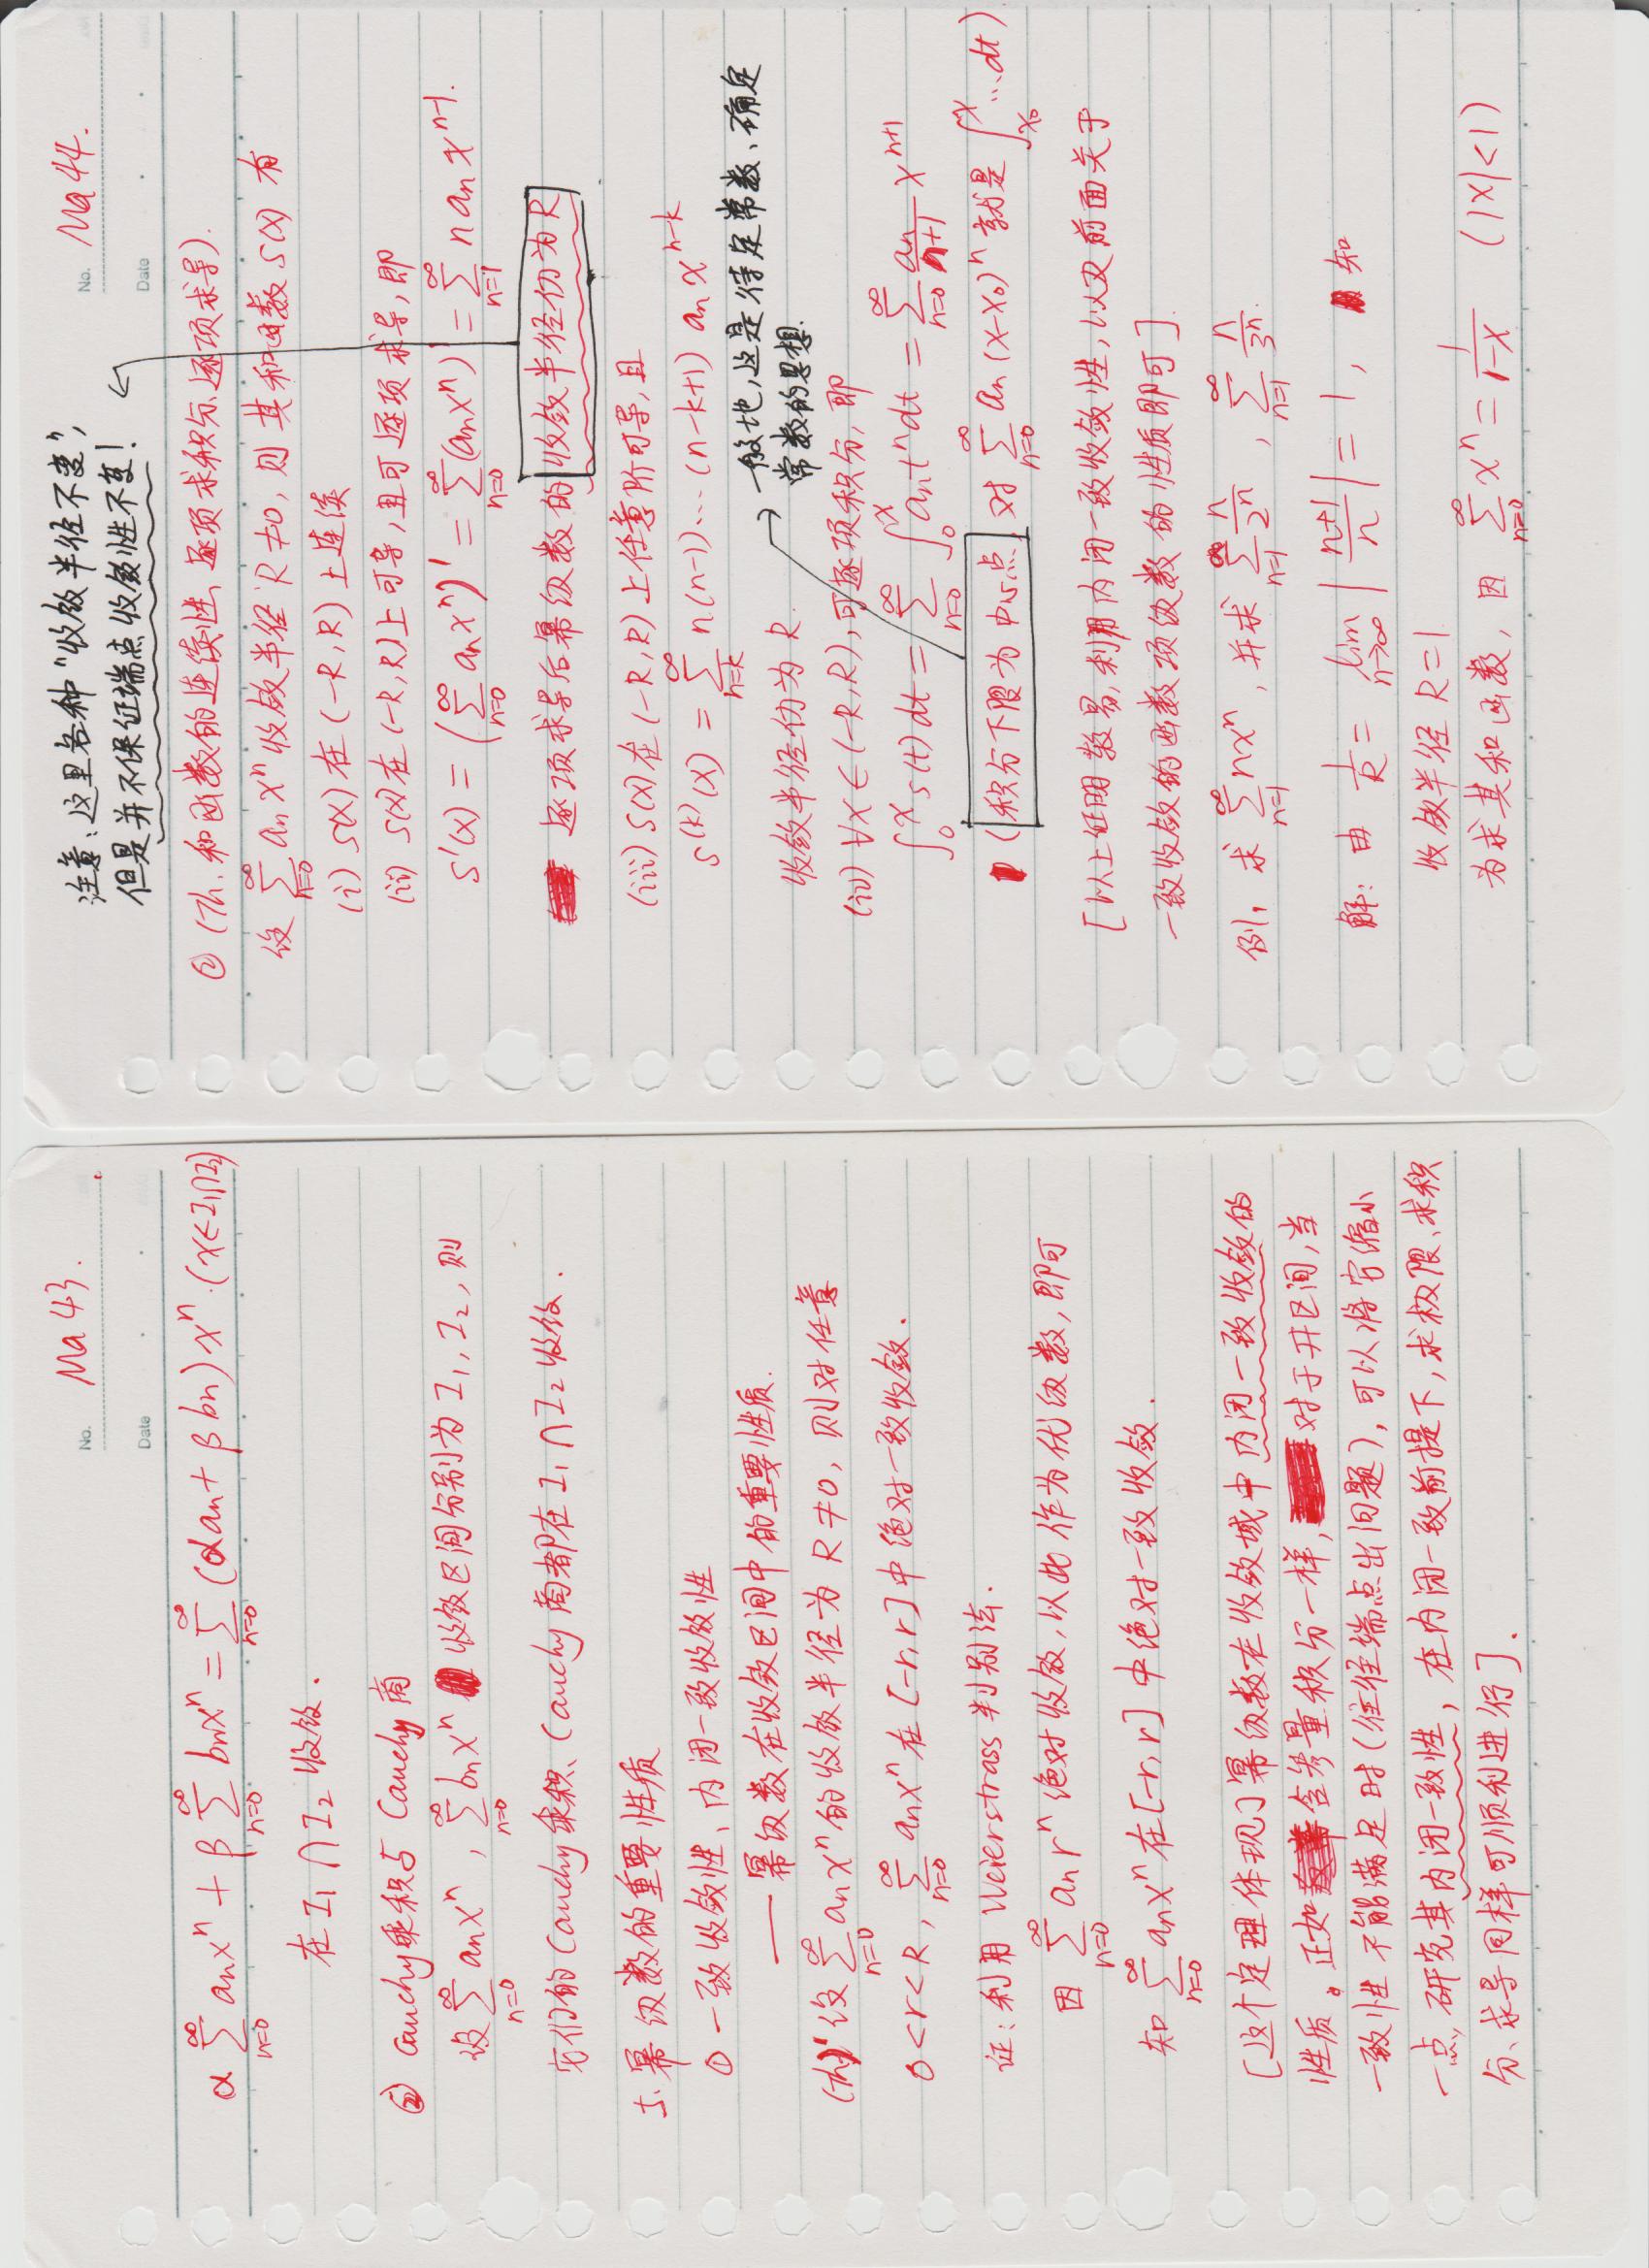 No. Ma 43.
Date
α∑_{n=0}^{∞} aₙxⁿ + β∑_{n=0}^{∞} bₙxⁿ = ∑_{n=0}^{∞} (αaₙ + βbₙ) xⁿ. (x∈I₁∩I₂)
在 I₁∩I₂ 收敛.
② Cauchy乘积与 Cauchy 商
设 ∑_{n=0}^{∞} aₙxⁿ, ∑_{n=0}^{∞} bₙxⁿ 收敛区间分别为 I₁, I₂, 则
它们的 Cauchy 乘积、Cauchy 商都在 I₁∩I₂ 收敛.
5、幂级数的重要性质
① 一致收敛性、内闭一致收敛性
—— 幂级数在收敛区间中的重要性质.
(Th) 设 ∑_{n=0}^{∞} aₙxⁿ 的收敛半径为 R≠0, 则对任意
0<r<R, ∑_{n=0}^{∞} aₙxⁿ 在 [-r, r] 中绝对一致收敛.
证: 利用 Weierstrass 判别法.
因 ∑_{n=0}^{∞} aₙrⁿ 绝对收敛, 以此作为优级数, 即可
知 ∑_{n=0}^{∞} aₙxⁿ 在 [-r, r] 中绝对一致收敛.
[这个定理体现了幂级数在收敛域中内闭一致收敛的
性质。正如含参量积分一样, 对于开区间, 当
一致性不能满足时(往往端点出问题), 可以将它缩小
一点, 研究其内闭一致性, 在内闭一致前提下, 求极限、求积
分、求导同样可顺利进行].
No. Ma 44.
Date
注意: 这里各种“收敛半径不变”,
但是并不保证端点收敛性不变!
② (Th. 和函数的连续性、逐项求积分、逐项求导).
设 ∑_{n=0}^{∞} aₙxⁿ 收敛半径 R≠0, 则其和函数 S(x) 有
(i) S(x) 在 (-R, R) 上连续
(ii) S(x) 在 (-R, R) 上可导, 且可逐项求导, 即
S'(x) = (∑_{n=0}^{∞} aₙxⁿ)' = ∑_{n=0}^{∞} (aₙxⁿ)' = ∑_{n=1}^{∞} n aₙ x^{n-1}.
逐项求导后幂级数的收敛半径仍为 R
(iii) S(x) 在 (-R, R) 上任意阶可导, 且
S^{(k)}(x) = ∑_{n=k}^{∞} n(n-1)⋯(n-k+1) aₙ x^{n-k}
收敛半径仍为 R.
一般地, 这是待定常数、确定
常数的思想.
(iv) ∀x∈(-R, R), 可逐项积分, 即
∫₀ˣ S(t) dt = ∑_{n=0}^{∞} ∫₀ˣ aₙtⁿ dt = ∑_{n=0}^{∞} aₙ/(n+1) x^{n+1}
(积分下限为中心点, 对 ∑_{n=0}^{∞} aₙ(x-x₀)ⁿ 就是 ∫_{x₀}^{x} … dt)
[以上证明较易, 利用内闭一致收敛性, 以及前面关于
一致收敛的函数项级数的性质即可].
例1. 求 ∑_{n=1}^{∞} nxⁿ, 并求 ∑_{n=1}^{∞} n/2ⁿ, ∑_{n=1}^{∞} n/3ⁿ.
解: 由 1/R = lim_{n→∞} |(n+1)/n| = 1, 知
收敛半径 R=1
为求其和函数, 因 ∑_{n=0}^{∞} xⁿ = 1/(1-x) (|x|<1)